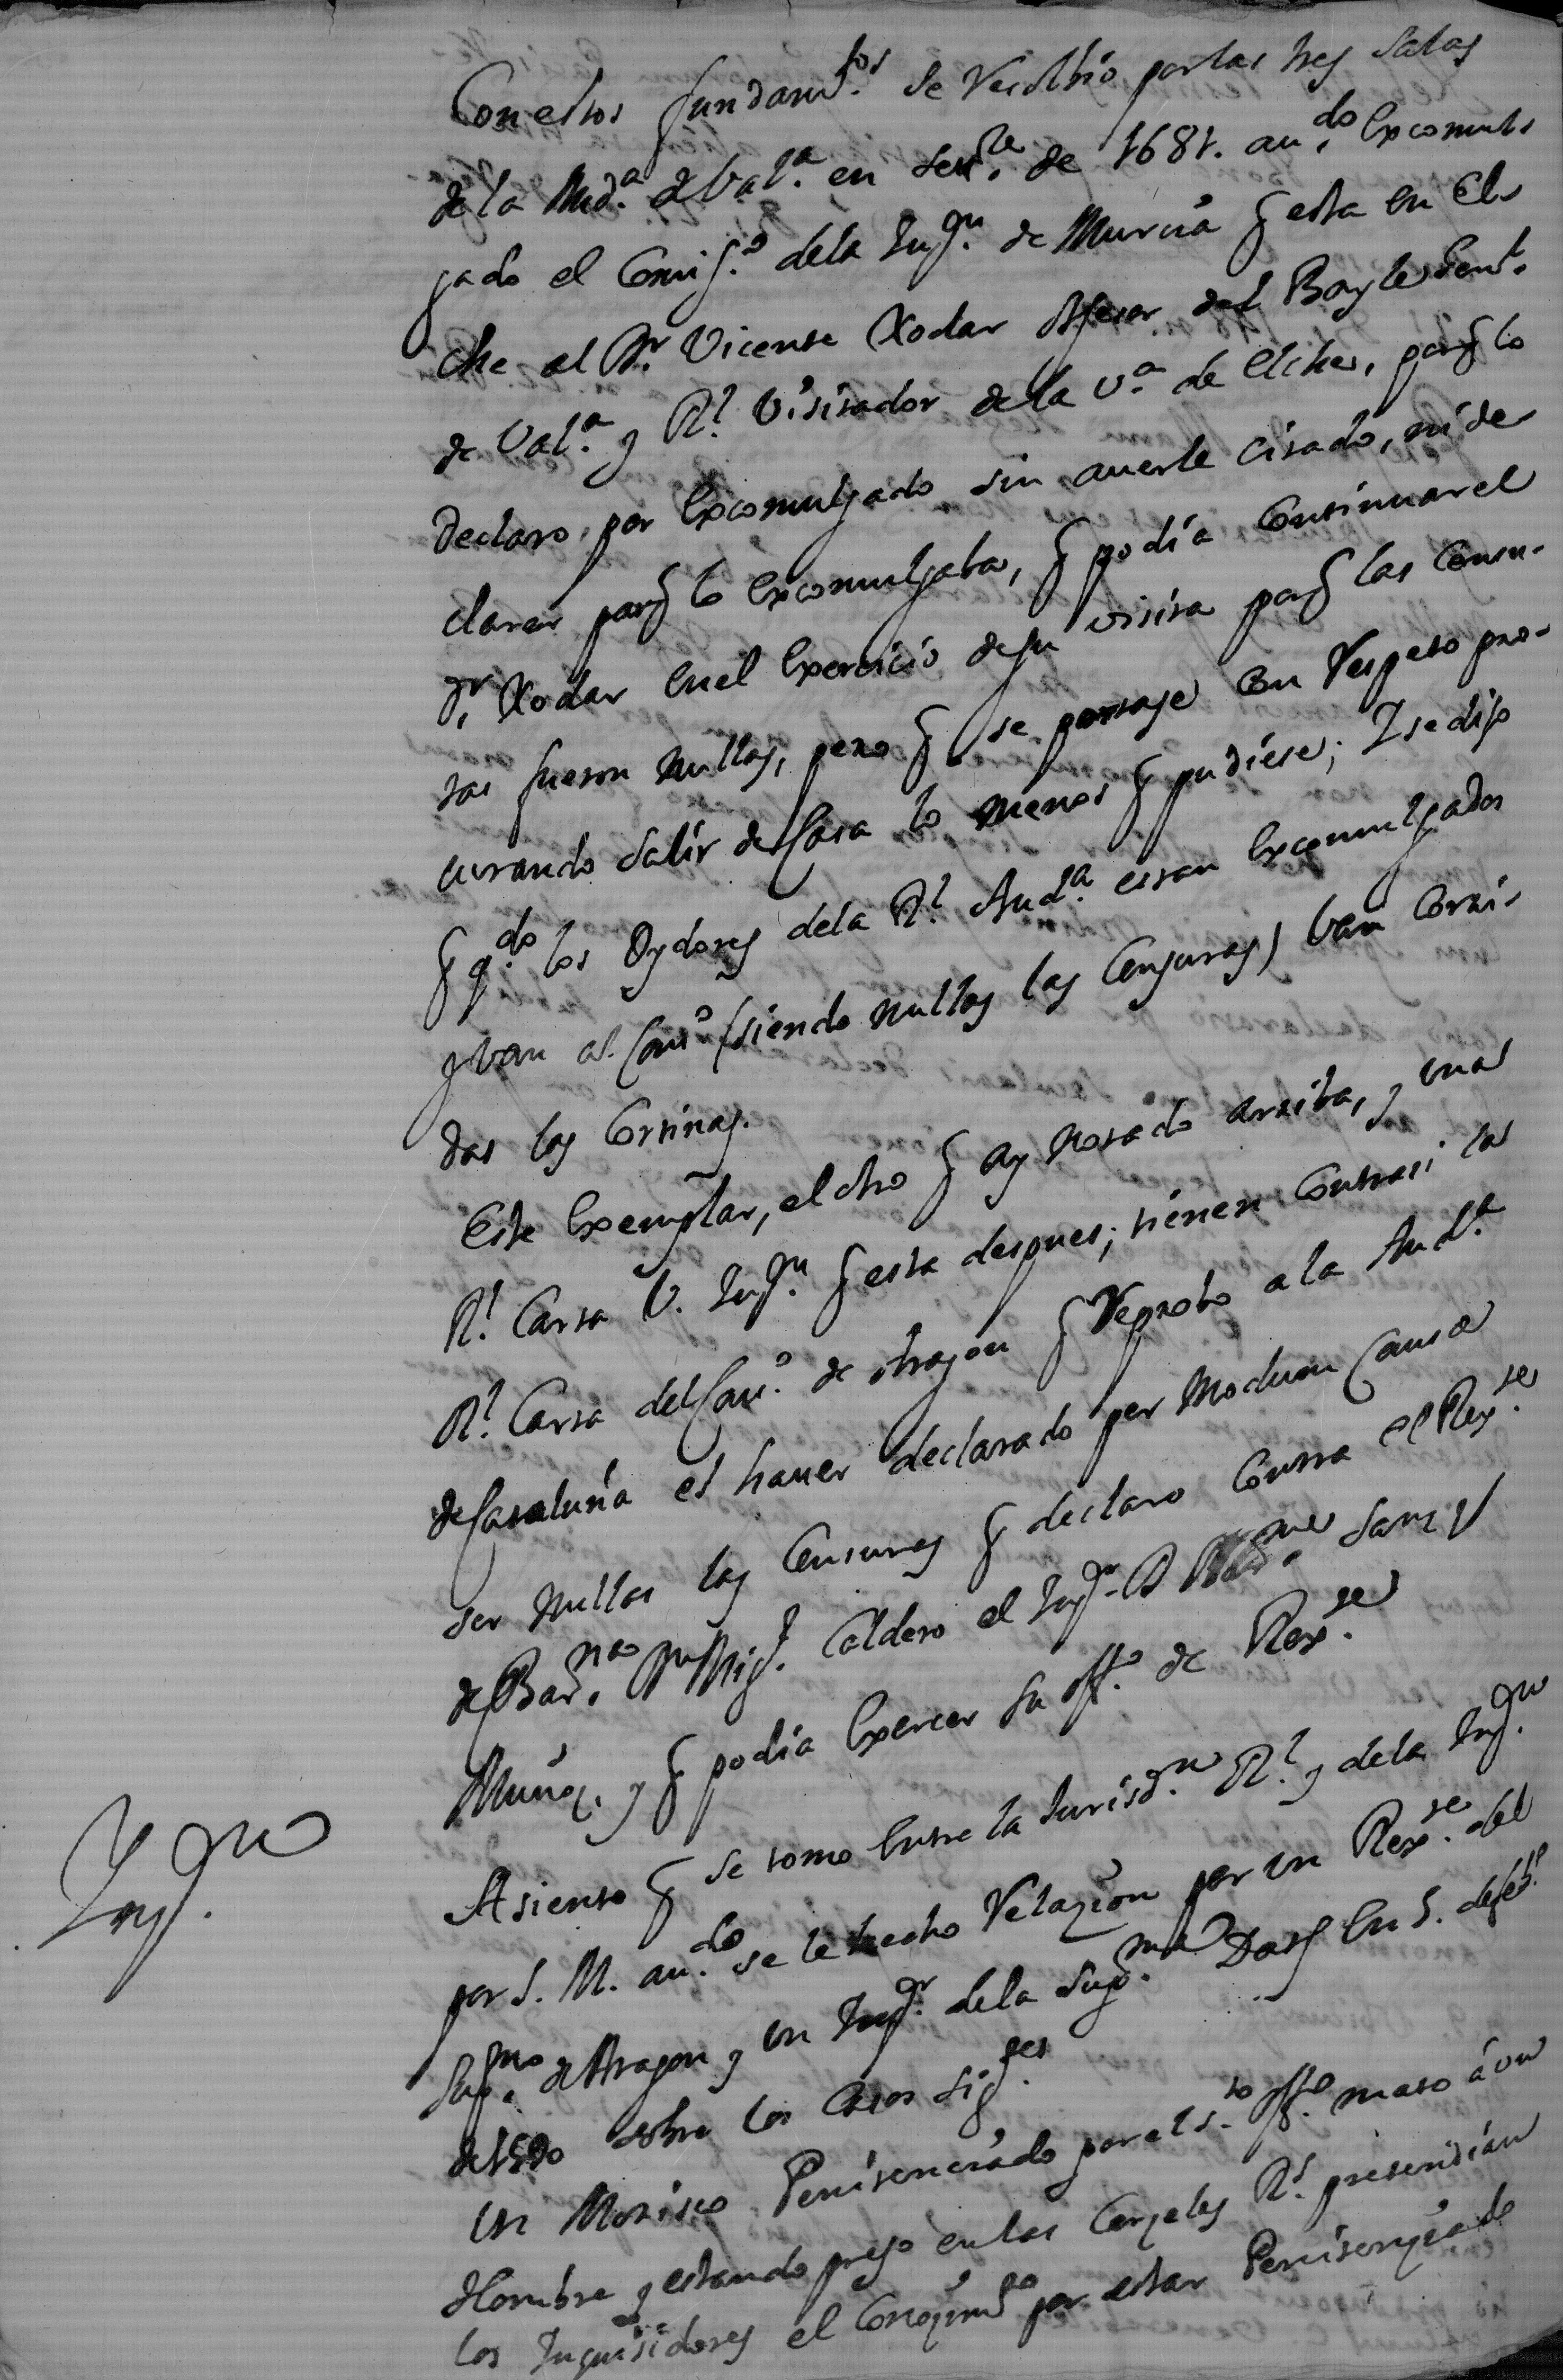 Con estos fundam.tos se Resolbio por las tres Salas
de la Aud.a de Val.a en Set.re de 1681. au.do Excomul-
gado el Comis.o de la Inq.n de Murcia q esta en El-
che al D.r Vicente Xodar Asesor del Bayle Gent.
de Val.a y R.l Visitador de la V.a de Elche, porq lo
Declaro por Excomulgado sin auerle Citado, ni de-
clarar porq lo Excomulgaba, q podia Continuar el
D.r Xodar en el Exercicio de su visita porq las Censu-
ras fueron Nullas, pero q se portase con Respeto pro-
curando Salir de Casa lo menos q pudiese; I se dijo
q q.do los Oydores de la R.l Aud.a estan Excomulgados
y van al Cons.o (siendo nullas las Censuras) van Corri-
das las Cortinas.
Este Exemplar, el otro q ay Notado arriba, y una
R.l Carta V. Inq.n q esta despues; tienen Contra si la
R.l Carta del Con.o de Aragon q Reprobo a la Aud.a
de Cataluña el hauer declarado per Modum Causa
ser Nullas las Censuras q declaro Contra el Reg.te
de Bar.na D.n Mig.l Caldero el Inq.r D Sanz y
Muñoz. y q podia Exercer su off.o de Reg.te
Inq.n
Asiento q se tomo Entre la Jurisd.n R.l y de la Inq.n
por S. M. au.do se le hecho Relazion por un Reg.te del
Sup.mo de Aragon y un Inq.r de la Sup.ma Dat en S. de feb.o
de sobre los Casos Sig.tes
Un Morisco Penitenciado por el S.to off.o mato á un
Hombre y estando preso en las Carzeles R.s pretendian
los Inquisidores el Conozim.to por estar Penitenziado